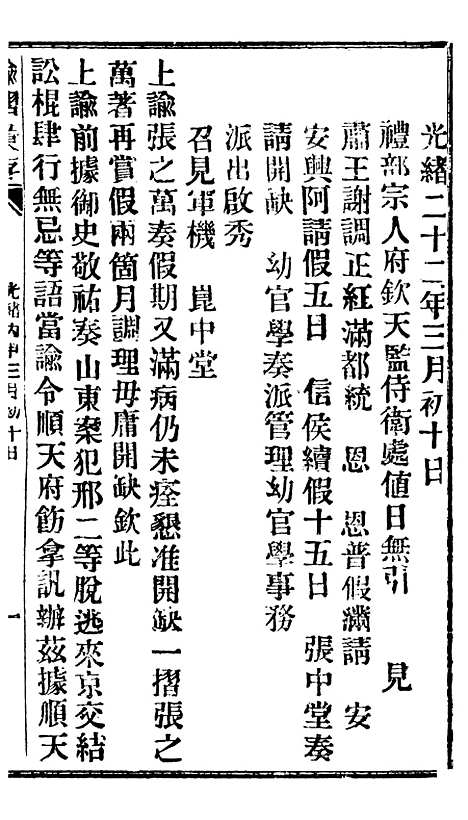 光緒二十二年三月初十日
禮部宗人府欽天監侍衛處值日無引　見
肅王謝調正紅滿都統　恩　恩普假滿請　安
安興阿請假五日　信侯續假十五日　張中堂奏
請開缺　幼官學奏派管理幼官學事務
派出啟秀
召見軍機　崑中堂
上諭張之萬奏假期又滿病仍未痊懇准開缺一摺張之
萬著再賞假兩箇月調理毋庸開缺欽此
上諭前據御史敬祐奏山東案犯邢二等脫逃來京交結
訟棍肆行無忌等語當諭令順天府飭拿訊辦茲據順天
諭摺彙存
光緒丙申三月初十日
一